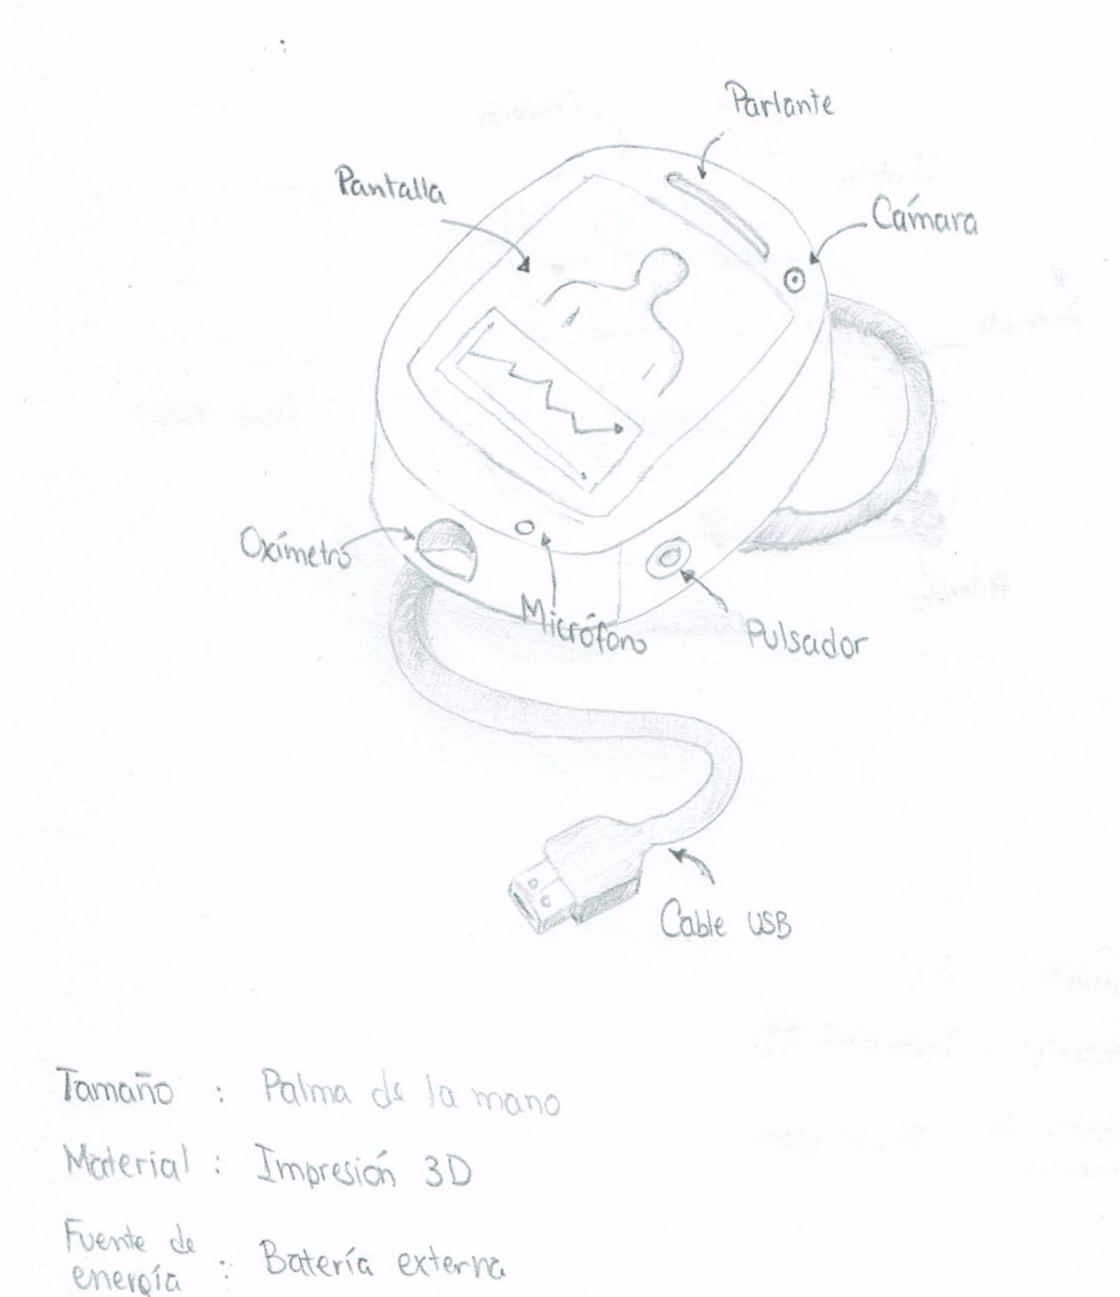 Parlante
Pantalla
Cámara
Oxímetro
Micrófono
Pulsador
Cable USB
Tamaño : Palma de la mano
Material : Impresión 3D
Fuente de
energía : Batería externa